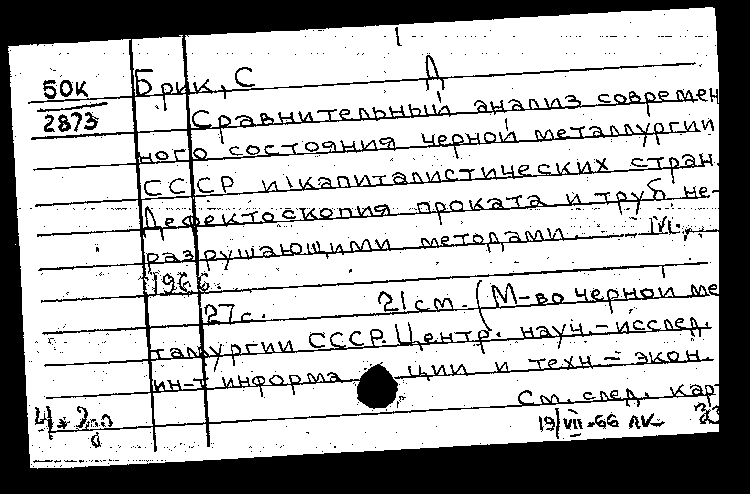 50к Брик, С Д
2873 Сравнительный анализ современ
ного состояния черной металлургии
СССР и капиталистических стран.
Дефектоскопия проката и труб не-
разрушающими методами. М.,
1966.
27с. 21см. (М-во черной ме
таллургии СССР. Центр. науч.-исслед.
ин-т информации и техн.-экон.
См. след. кар
19/VII-66 ЛК